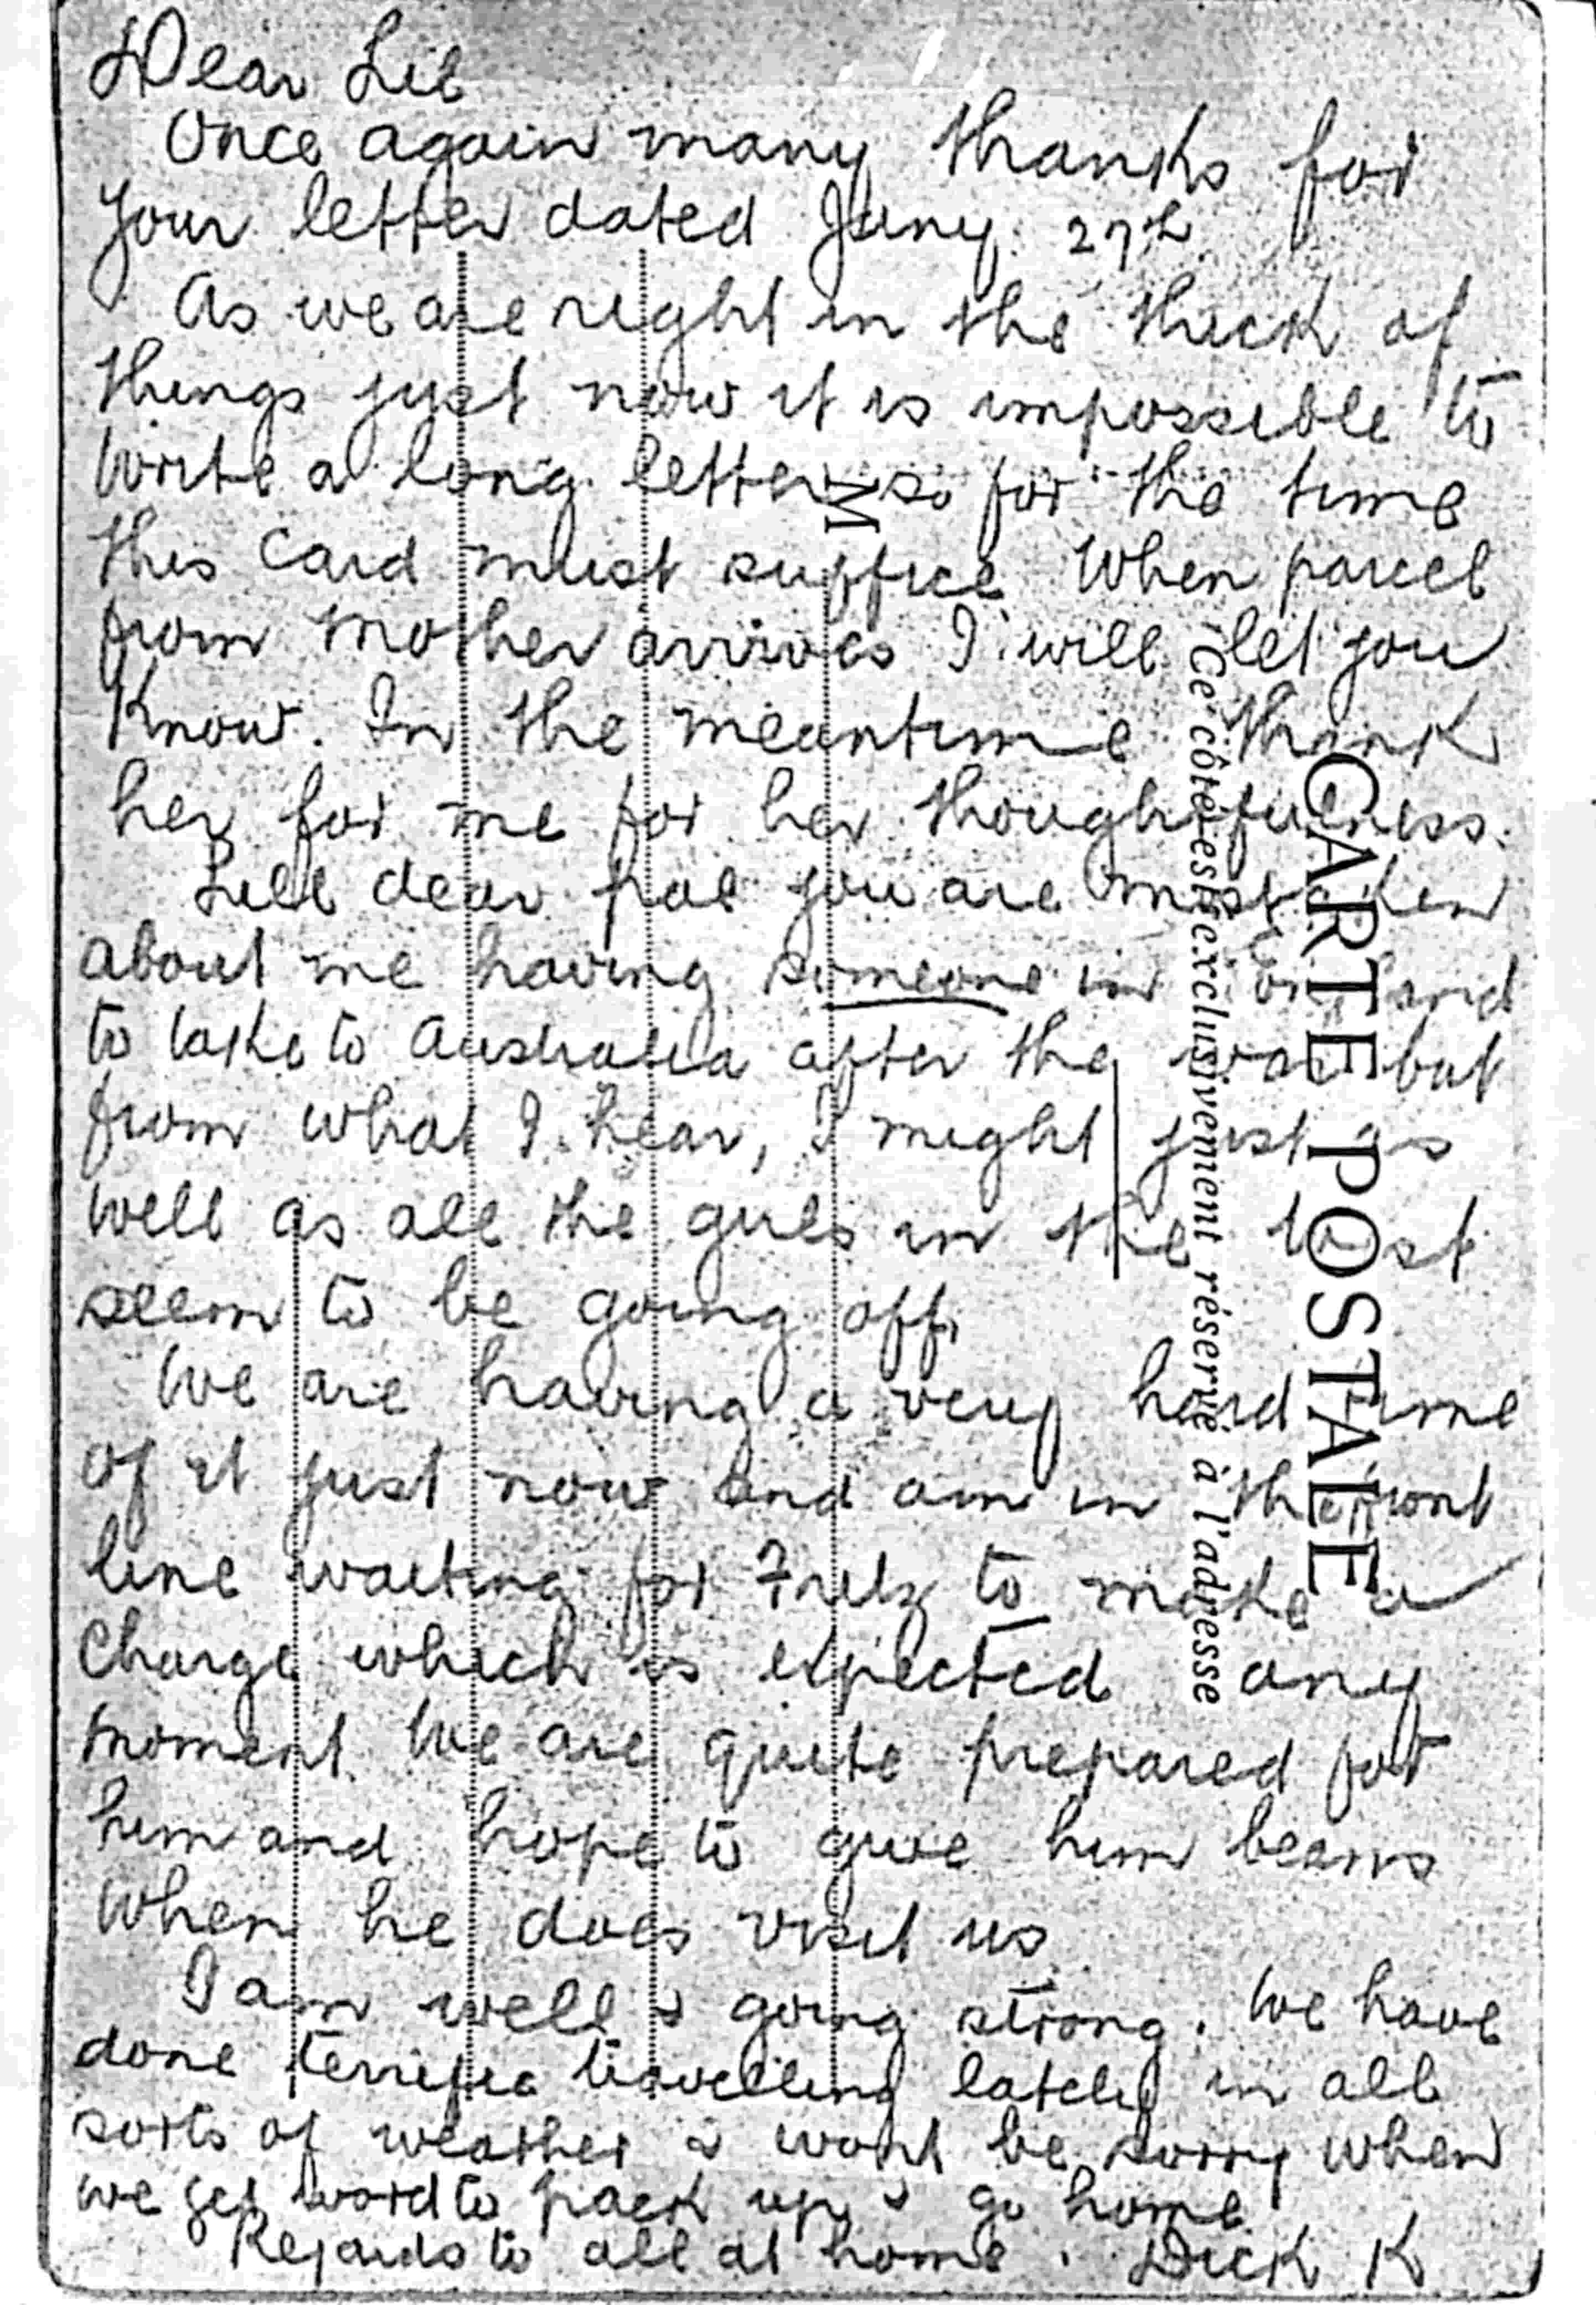 Dear Lil
Once again many thanks for
your letter dated Jany. 27th.
As we are right in the thick of
things just now it is impossible to
write a long letter so for the time
this card must suffice. When parcel
from Mother arrives I will let you
know. In the meantime thank
her for me for her thoughtfulness.
Lill dear pal you are mistaken
about me having someone in England
to take to Australia after the war but
from what I hear, I might just as
well as all the girls in the West
seem to be going off.
We are having a very hard time
of it just now and am in the front
line waiting for Fritz to make a
charge which is expected any
moment. We are quite prepared for
him and hope to give him beans
when he does visit us
I am well & going strong. We have
done terrific travelling lately in all
sorts of weather & wont be sorry when
we get word to pack up & go home
Regards to all at home. Dick K
M
CARTE POSTALE
Ce côté est exclusivement réservé à l'adresse